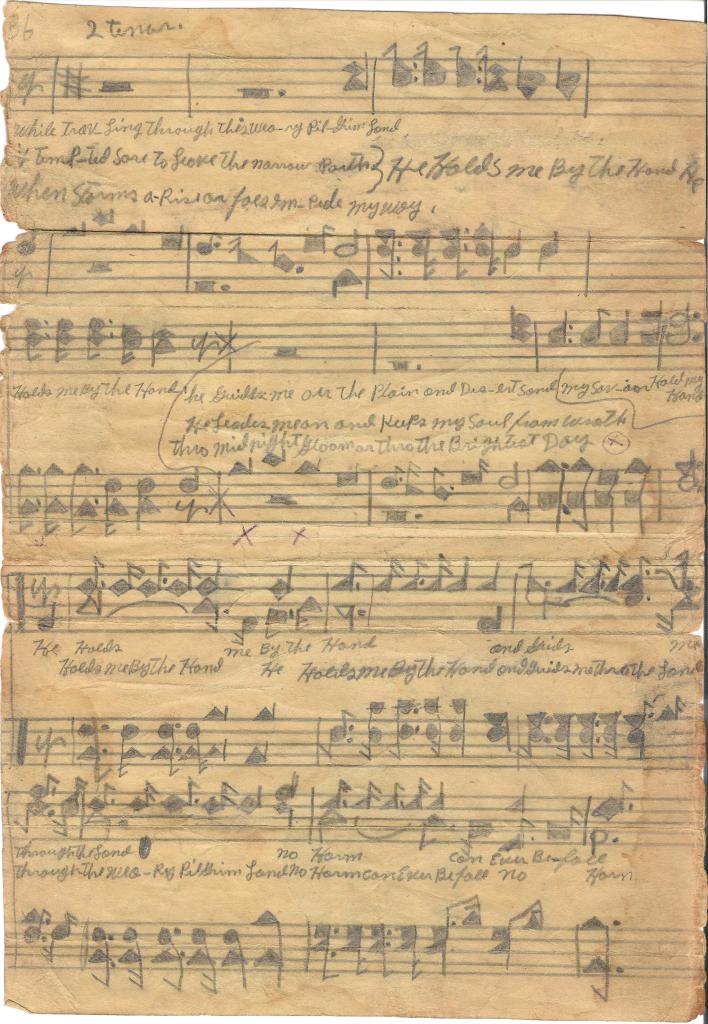 36 2 tenor.
While Trav-ling through this wea-ry Pil-grim Land
if temp-ted Sore to Leave the narrow Path } He Holds me By the Hand He
When Storms a-Rise or foes im-Pede my way.
Holds me By the Hand he Guides me oer the Plain and Des-ert Sand my Sav-ior Hold my Hand
He Leades me on and Keeps my Soul from wrath
thro midnight Gloom or thro the Brightest Day
He Holds me By the Hand and Guids me
Holds me By the Hand He Holds me By the Hand and Guids me thro the Land
through the Land no Harm can Ever Be-fall
through the wea-Ry Pilgrim Land No Harm can Ever Befall no Harm